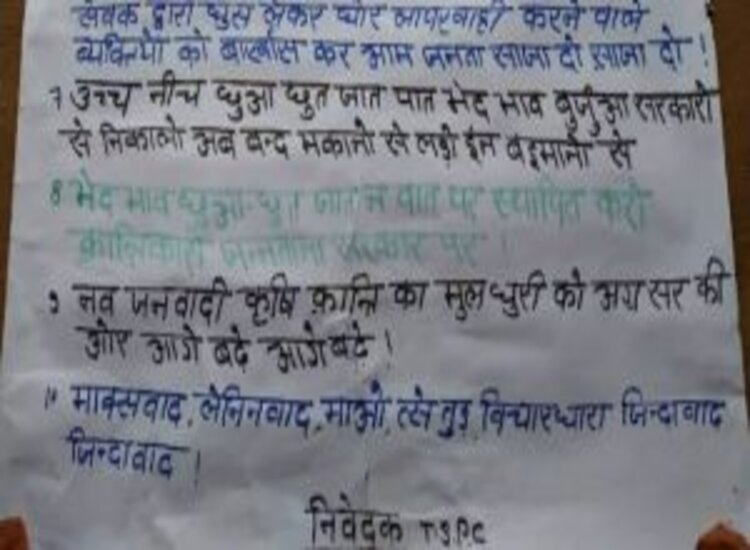 सेवक द्वारा घुस लेकर घोर लापरवाही करने वाले
व्यक्तियों को बर्खास कर आम जनता साजा दो साजा दो !
7 उच्च नीच छुआ छुत जात पात भेद भाव बुर्जुआ सरकारो
से निकालो अब बन्द मकानो से लड़ो इन बइमानो से
8 भेद भाव छुआ-छुत जात न पात पर स्थापित करो
क्रान्तिकारी जनताना सरकार पर !
9 नव जनवादी कृषि क्रान्ति का मुल धुरी को अग्रसर की
ओर आगे बढे आगे बढे !
10 माक्सवाद, लेनिनवाद, माओ त्से तुङ विचारधारा जिन्दाबाद
जिन्दाबाद !
निवेदक T.S.P.C